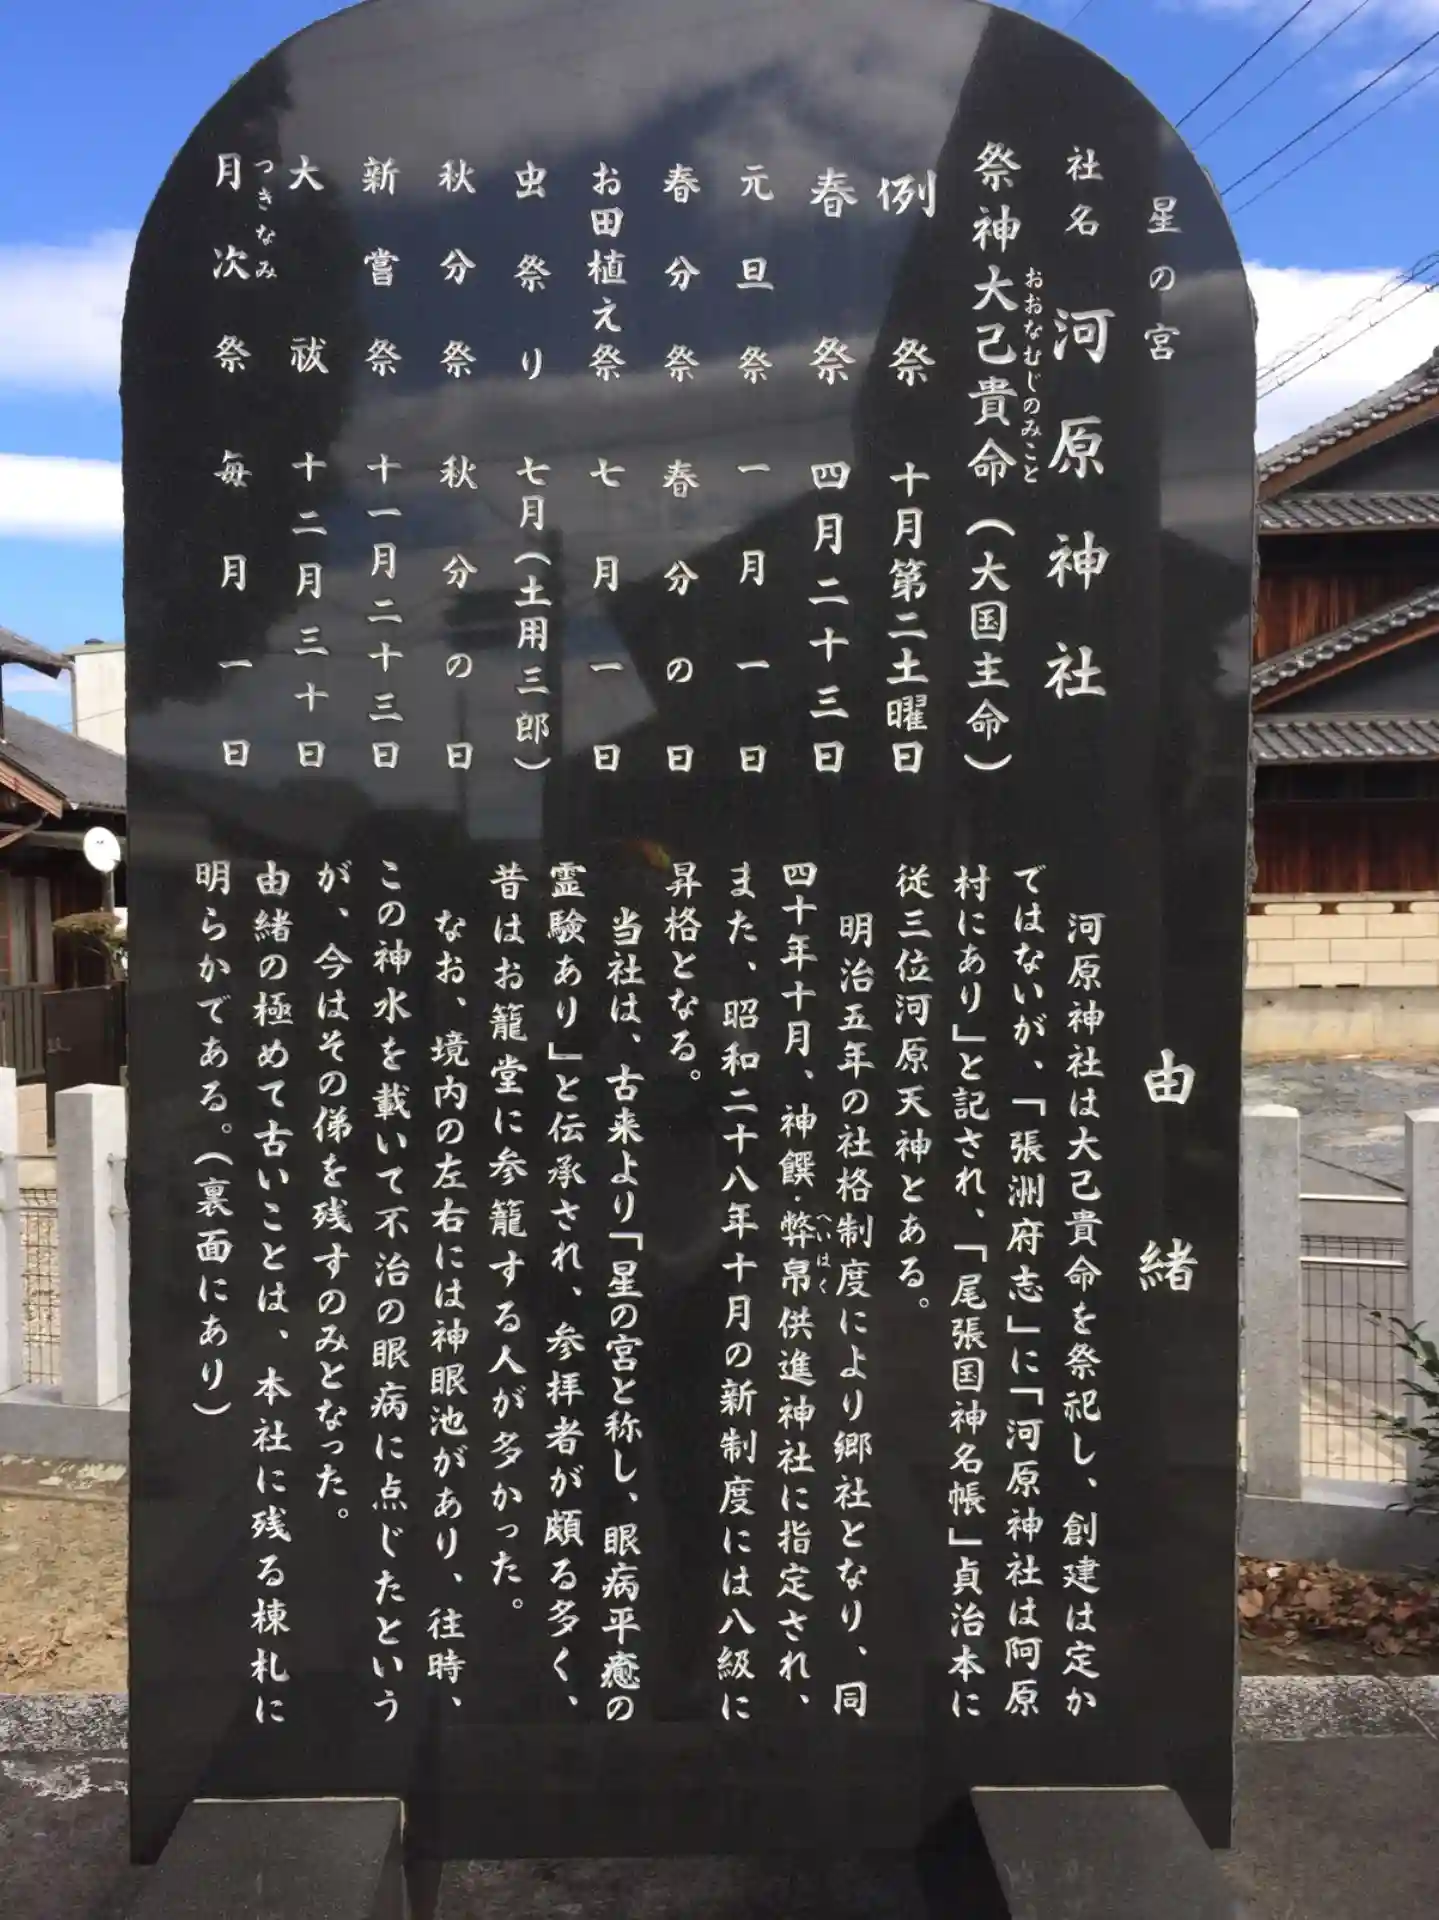 星の宮
社名 河原神社
祭神大己貴命（大国主命）
おおなむじのみこと
例祭 十月第二土曜日
春祭 四月二十三日
元旦祭 一月一日
春分祭 春分の日
お田植え祭 七月一日
虫祭り 七月（土用三郎）
秋分祭 秋分の日
新嘗祭 十一月二十三日
大祓 十二月三十日
月次祭 毎月一日
つきなみ
由緒
河原神社は大己貴命を祭祀し、創建は定か
ではないが、「張洲府志」に「河原神社は阿原
村にあり」と記され、「尾張国神名帳」貞治本に
従三位河原天神とある。
明治五年の社格制度により郷社となり、同
四十年十月、神饌・弊帛供進神社に指定され、
へいはく
また、昭和二十八年十月の新制度には八級に
昇格となる。
当社は、古来より「星の宮と称し、眼病平癒の
霊験あり」と伝承され、参拝者が頗る多く、
昔はお籠堂に参籠する人が多かった。
なお、境内の左右には神眼池があり、往時、
この神水を載いて不治の眼病に点じたという
が、今はその俤を残すのみとなった。
由緒の極めて古いことは、本社に残る棟札に
明らかである。（裏面にあり）